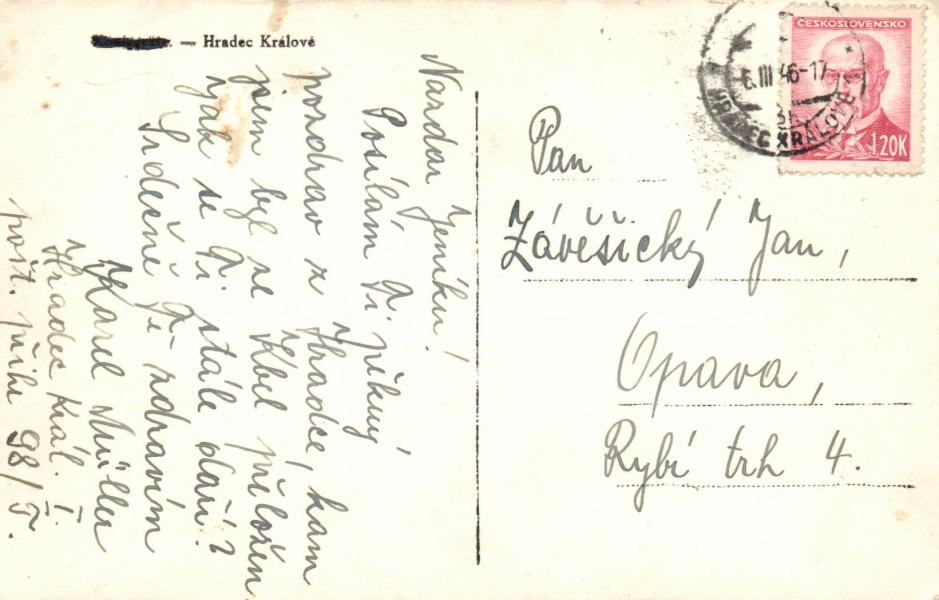 — Hradec Králové
Nazdar Jeníku!
Posílám Ti pěkný
pozdrav z Hradce, kam
jsem byl ze Kbel přeložen
Jak se Ti stále daří?
Srdečně Tě zdravím
Karel Müller
Hradec Král. I.
pošt. přihr 98/
ČESKOSLOVENSKO
1.20K
6.III.46-17
HRADEC KRÁLOVÉ
Pan
Závěšický Jan,
Opava,
Rybí trh 4.